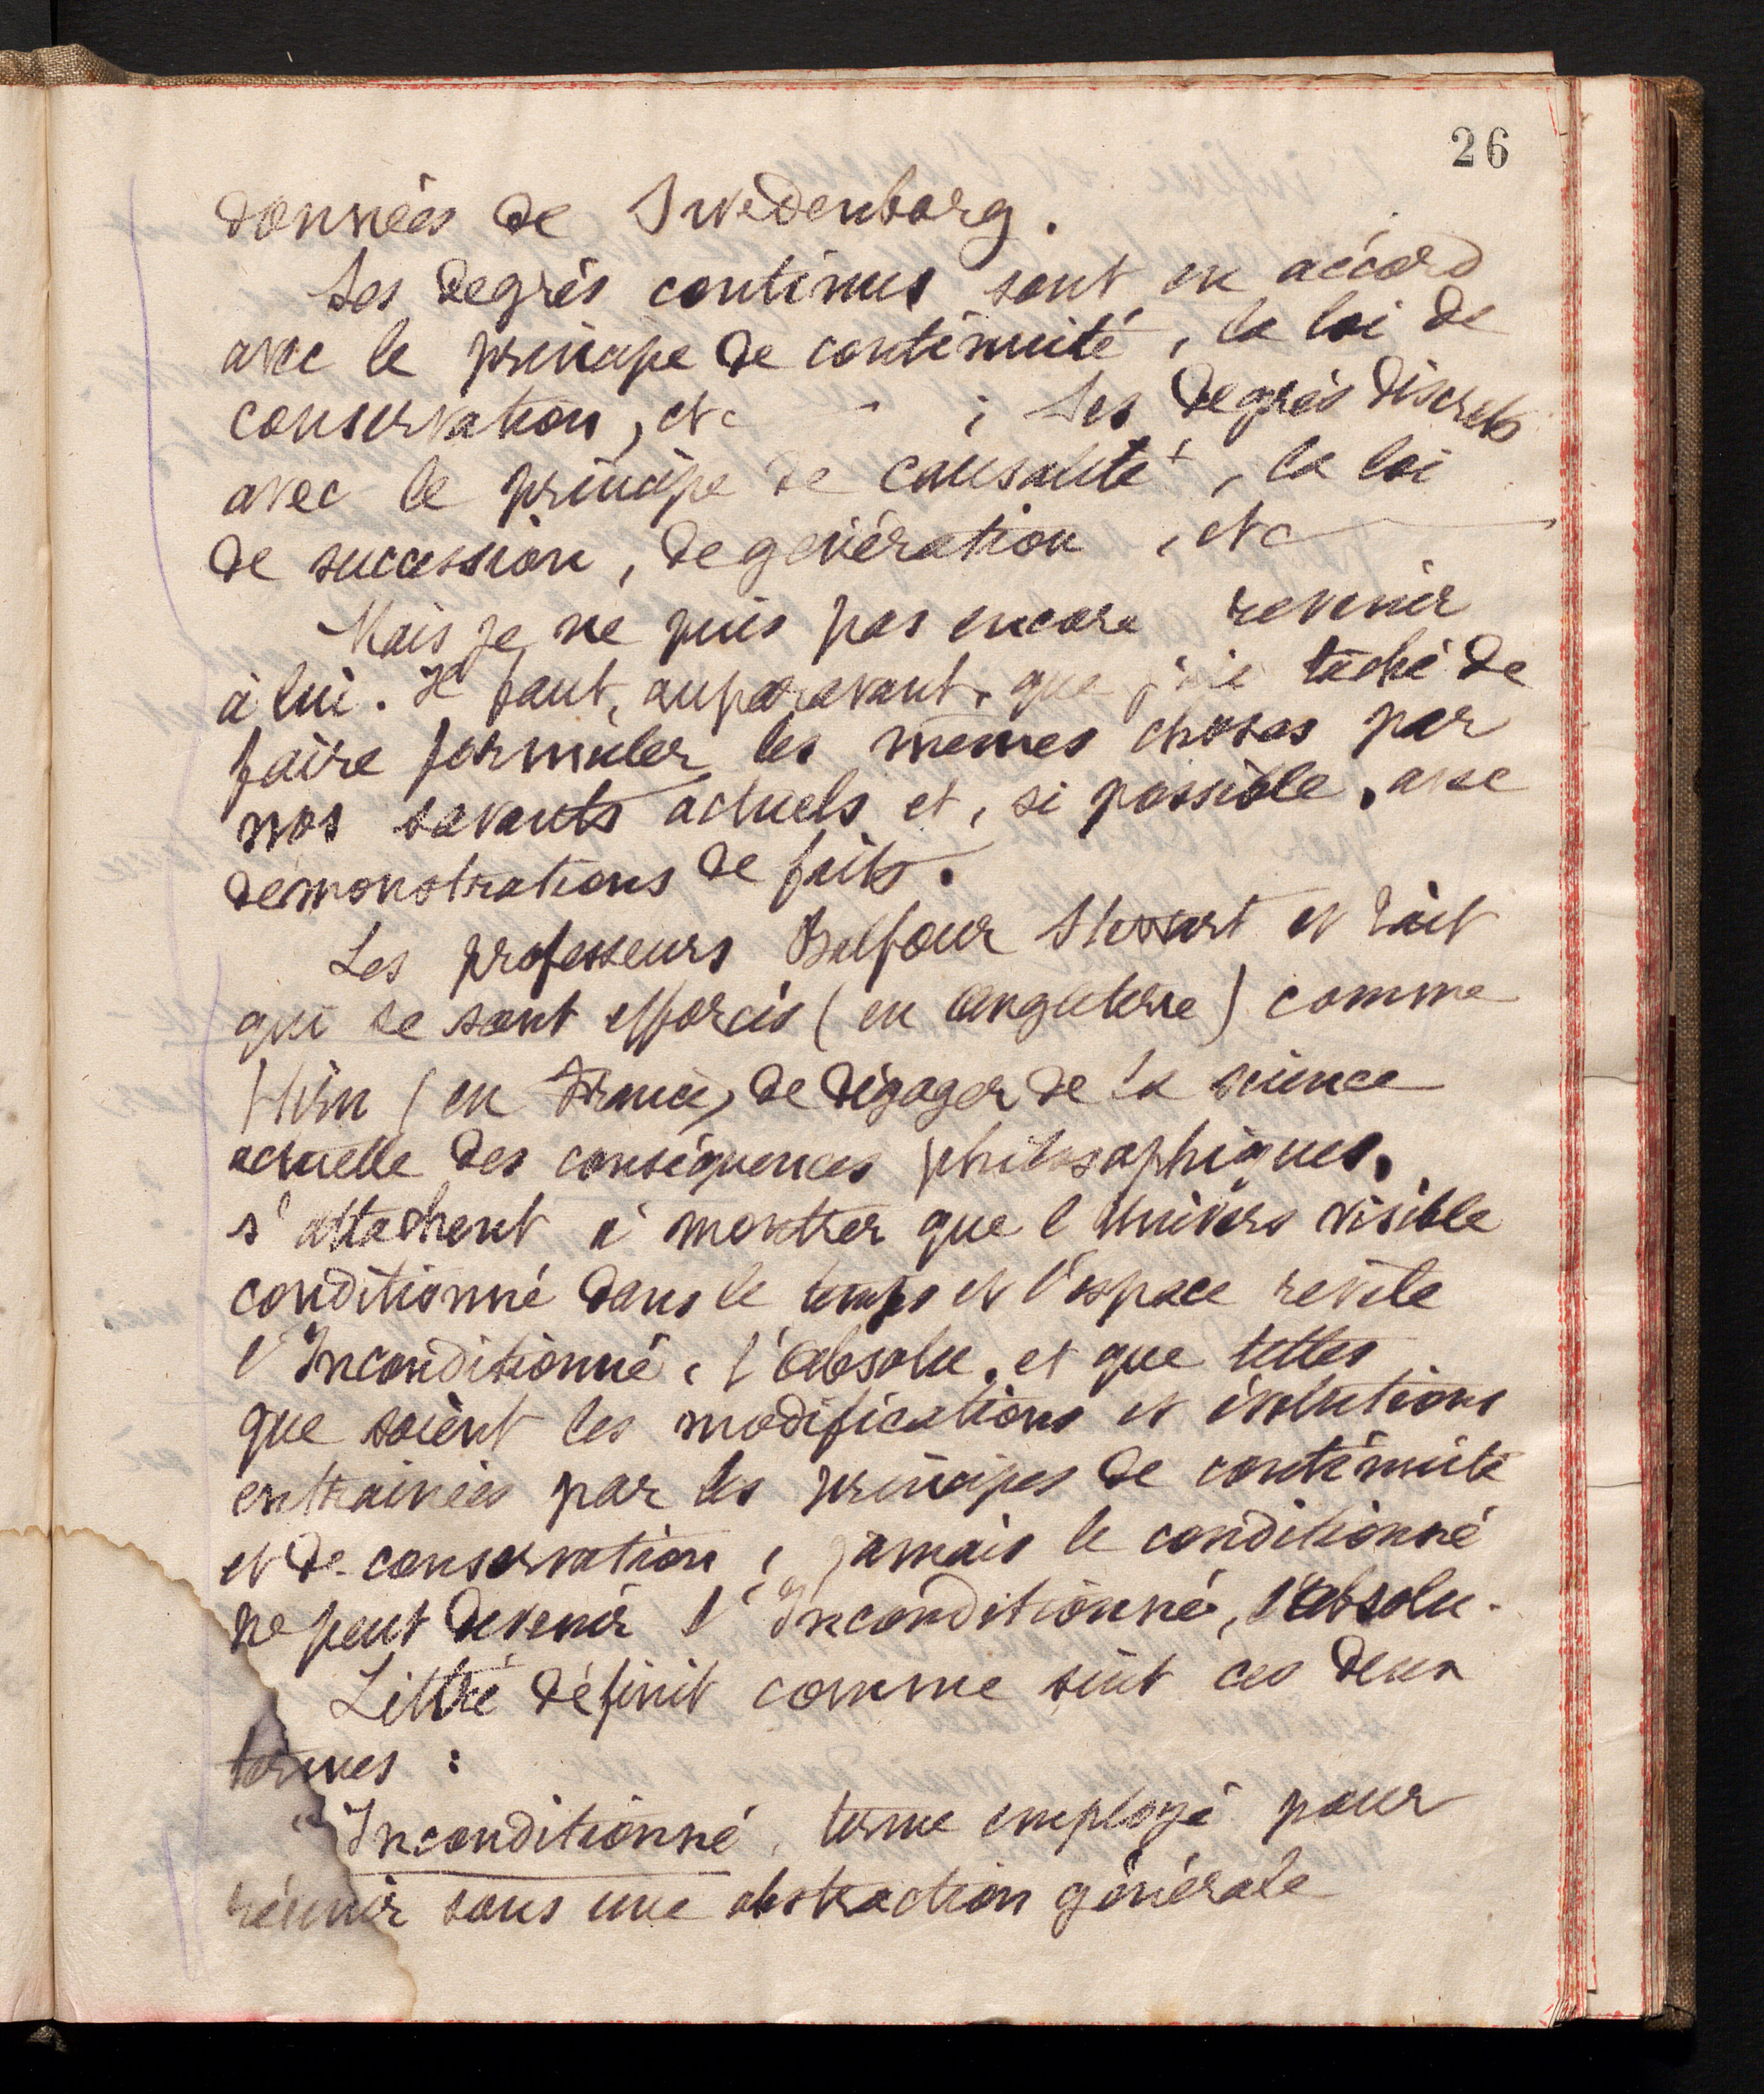 26
données de Swedenborg.
Ses degrés continus sont en accord
avec le principe de continuité, la loi de
conservation, etc ; Ses degrés discrets
avec le principe de causalité, la loi
de succession, de génération, etc
Mais je ne puis pas encore revenir
à lui. Il faut, auparavant, que j'aie tâché de
faire formuler les mêmes choses par
nos savants actuels et, si possible, avec
démonstrations de faits.
Les professeurs Balfour Stewart et Tait
qui se sont efforcés (en Angleterre) comme
Hirn (en France) de dégager de la science
actuelle des conséquences philosophiques,
s'attachent à montrer que l'Univers visible
conditionné dans le temps et l'espace révèle
l'Inconditionné, l'Absolu, et que telles
que soient les modifications et évolutions
entrainées par les principes de continuité
et de conservation, jamais le conditionné
ne peut devenir l'Inconditionné, l'Absolu.
Littré définit comme suit ces deux
termes :
"Inconditionné, terme employé pour
réunir sous une abstraction générale